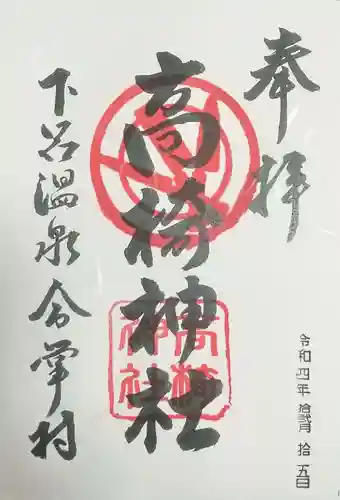 奉拝
高椅神社
高椅神社
下呂温泉合掌村
令和四年 拾弐月 拾五日